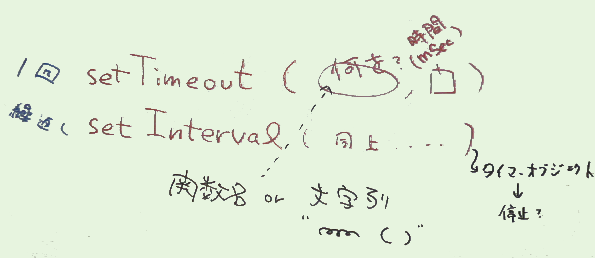 時間
(msec)
1回 setTimeout ( 何を?, □ )
繰返し setInterval ( 同上 .... )
タイマーオブジェクト
↓
停止?
関数名 or 文字列
" ()"